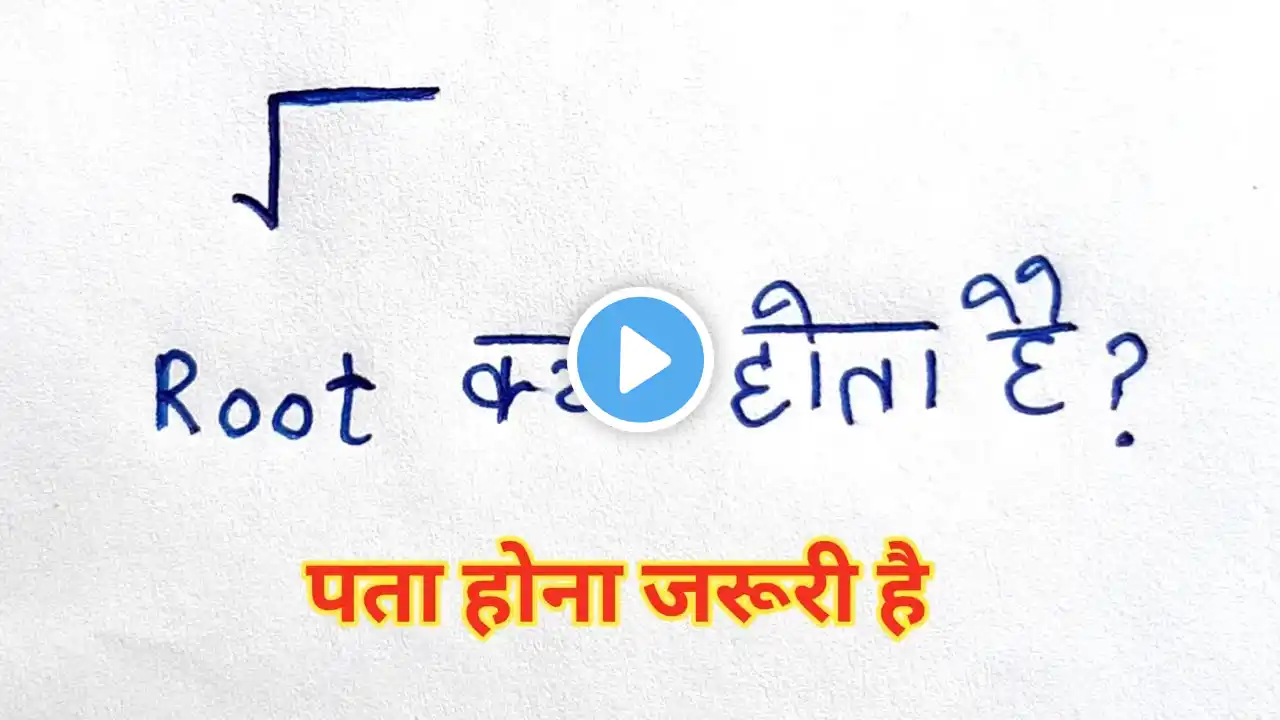 √
Root होता है?
पता होना जरूरी है